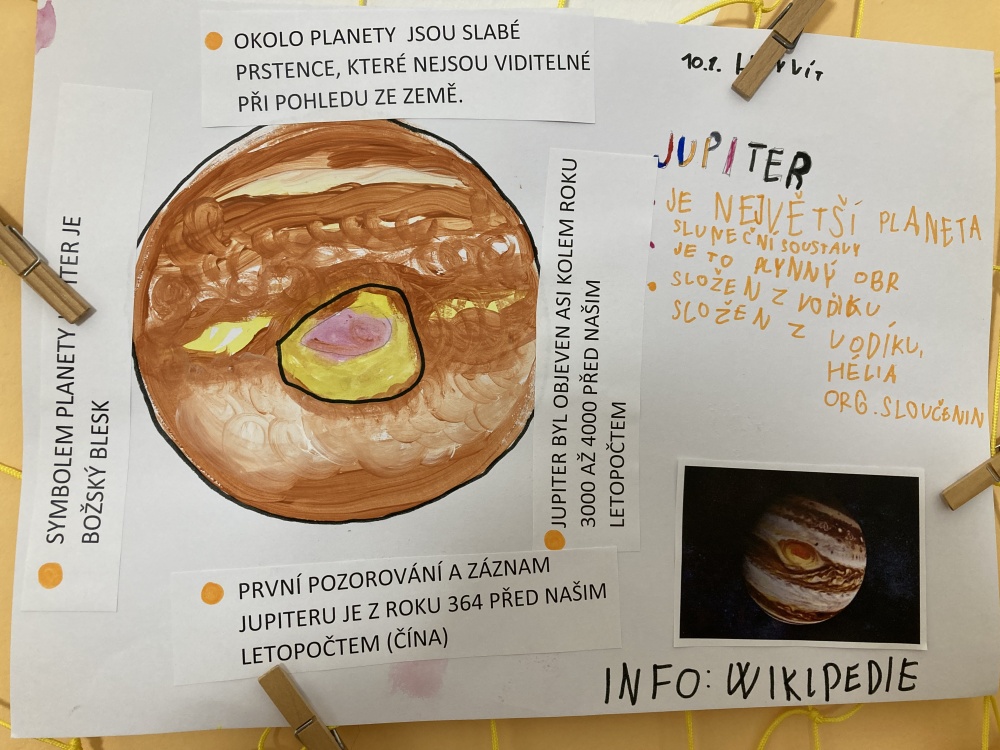 OKOLO PLANETY JSOU SLABÉ
PRSTENCE, KTERÉ NEJSOU VIDITELNÉ
PŘI POHLEDU ZE ZEMĚ.
10.1.
JUPITER
JE NEJVĚTŠÍ PLANETA
SLUNEČNÍ SOUSTAVY
JE TO PLYNNÝ OBR
SLOŽEN Z VODIKU
SLOŽEN Z VODÍKU,
HÉLIA
ORG. SLOUČENIN
SYMBOLEM PLANETY JE
BOŽSKÝ BLESK
JUPITER BYL OBJEVEN ASI KOLEM ROKU
3000 AŽ 4000 PŘED NAŠIM
LETOPOČTEM
PRVNÍ POZOROVÁNÍ A ZÁZNAM
JUPITERU JE Z ROKU 364 PŘED NAŠIM
LETOPOČTEM (ČÍNA)
INFO: WIKIPEDIE